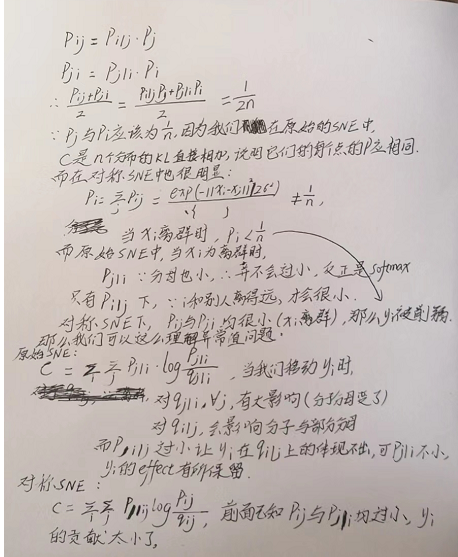 Pij = Pi|j · Pj
Pji = Pj|i · Pi
∴ (Pij+Pji)/2 = (Pi|jPj+Pj|iPi)/2 = 1/2n
∵ Pj与Pi应该为1/n, 因为我们在原始的SNE中,
C是n个分布的KL直接相加, 说明它们的每个点的P应相同.
而在对称SNE中也很明显:
Pi = Σj Pij = exp(-||xi-xj||²/2σ²) / { } ≠ 1/n,
当xi离群时, Pi < 1/n
而原始SNE中, 当xi为离群时,
Pj|i ∵分母也小, ∴并不会过小, 反正是softmax
只有Pi|j下, ∵i和别人离得远, 才会很小.
对称SNE下, Pij与Pji均很小(xi离群), 那么yi被削弱.
那么我们可以这么理解异常值问题:
原始SNE:
C = Σi Σj Pj|i · log Pj|i/qj|i , 当我们移动yi时,
对qj|i, ∀j, 有大影响(分子分母变了)
对qi|j, 会影响分子与部分分母
而Pi|j过小让yi在qi|j上的体现不出, 可Pj|i不小,
yi的effect有所保留.
对称SNE:
C = Σi Σj Pij log Pij/qij , 前面已知Pij与Pji均过小, yi
的贡献太小了,